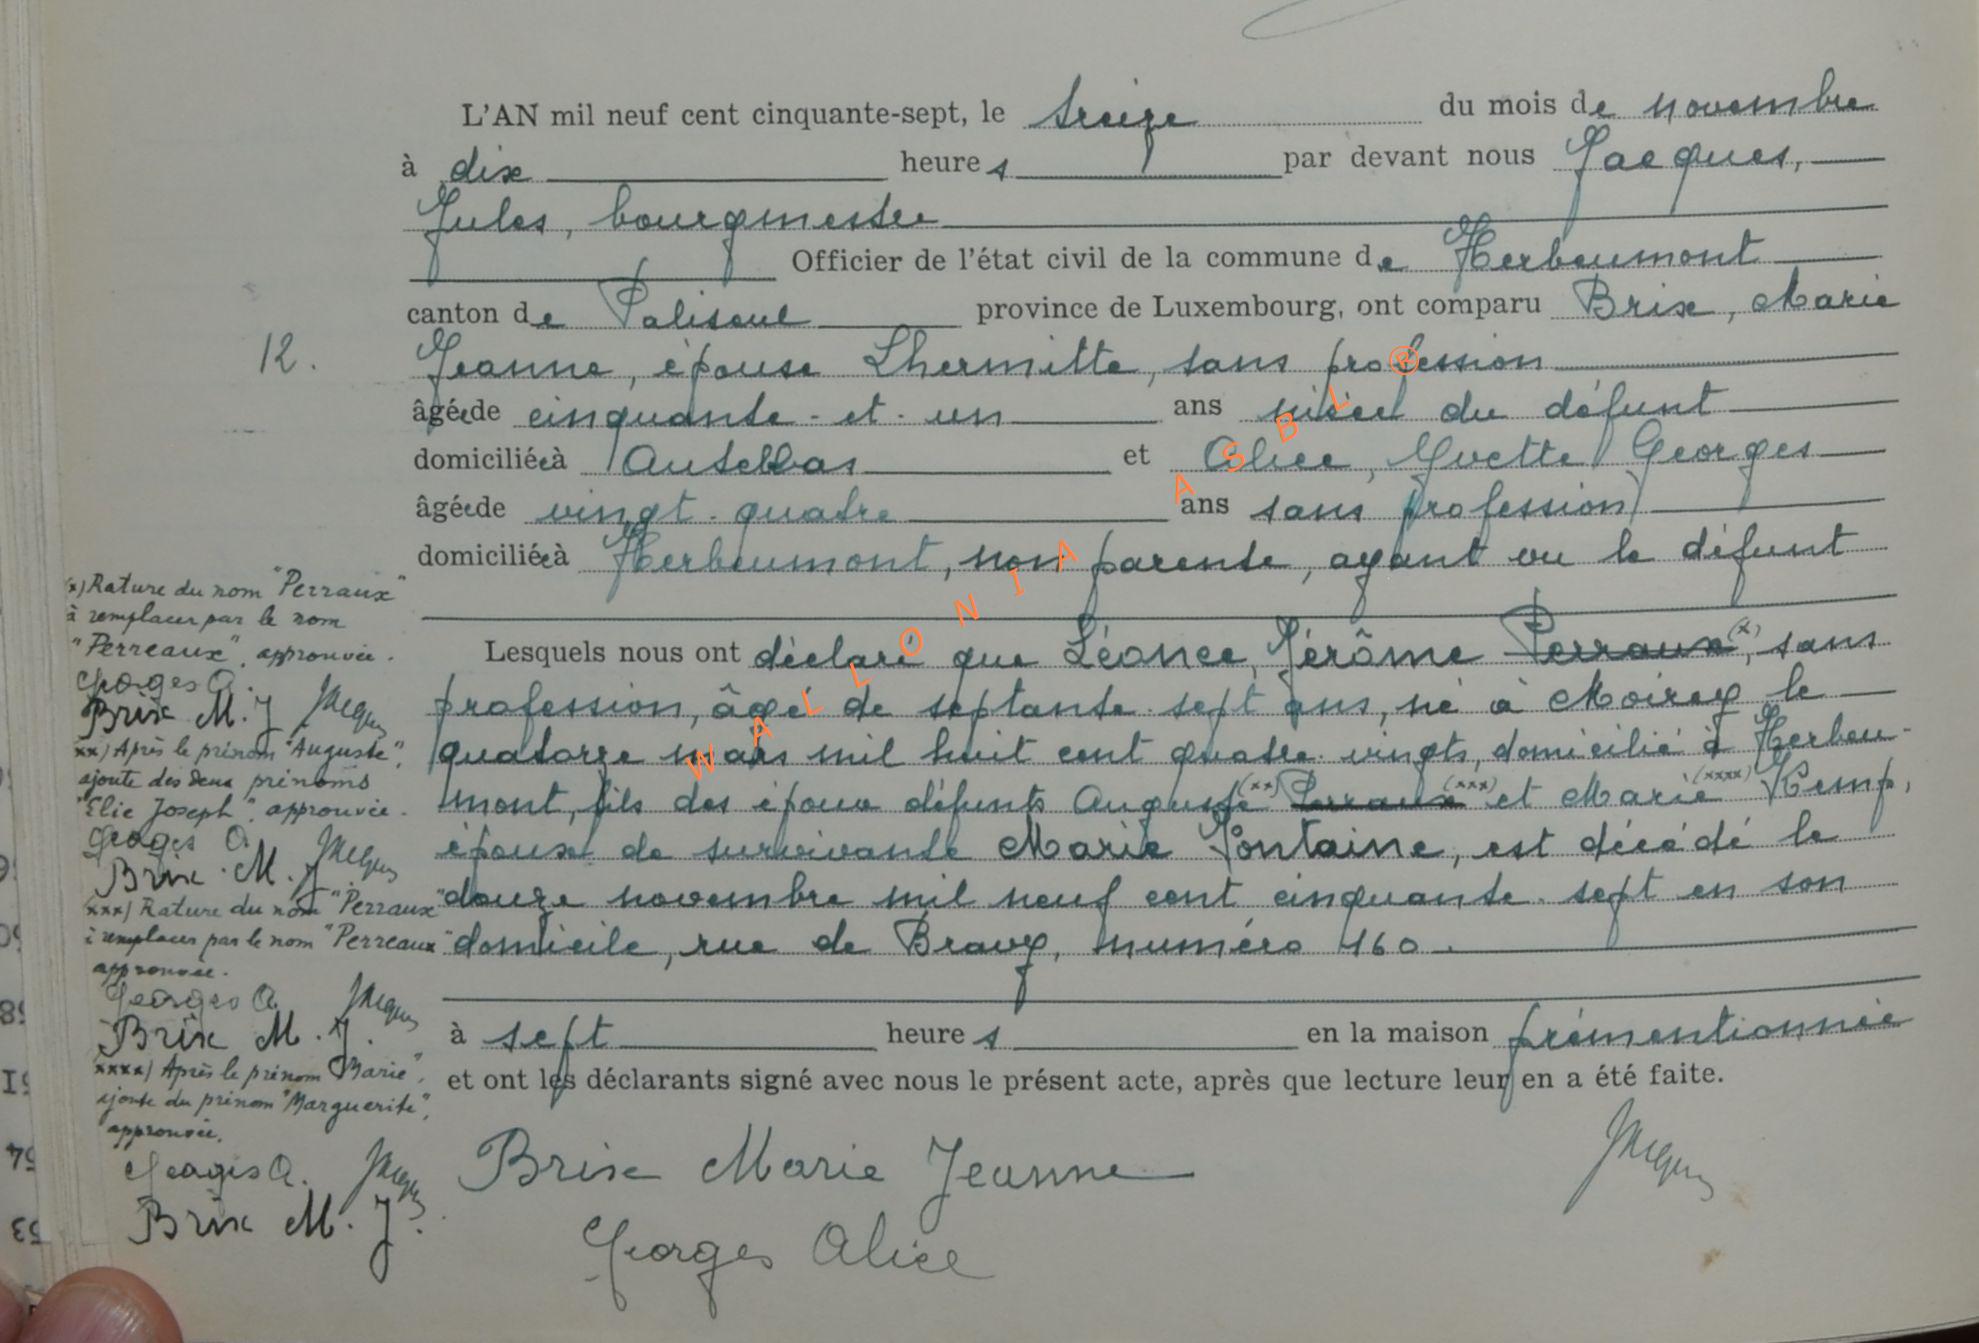 L'AN mil neuf cent cinquante-sept, le treize du mois de novembre
à dix heures par devant nous Jacques,
Jules, bourgmestre
Officier de l'état civil de la commune de Herbeumont
canton de Paliseul province de Luxembourg, ont comparu Brix, Marie
Jeanne, épouse Lhermitte, sans profession
âgée de cinquante-et-un ans nièce du défunt
domiciliée à Autelbas et Alice, Yvette Georges
âgée de vingt-quatre ans sans profession
domiciliée à Herbeumont, non parente, ayant vu le défunt
Lesquels nous ont déclaré que Léonce, Jérôme Perraux (x), sans
profession, âgé de septante-sept ans, né à Moircy le
quatorze mars mil huit cent quatre-vingts, domicilié à Herbeu-
mont, fils des époux défunts Auguste (xx) Perraux (xxx) et Marie (xxxx) Kemp,
époux de survivante Marie Pontaine, est décédé le
douze novembre mil neuf cent cinquante-sept en son
domicile, rue de Bravy, numéro 160.
à sept heures en la maison prémentionnée
et ont les déclarants signé avec nous le présent acte, après que lecture leur en a été faite.
Brix Marie Jeanne
Jacques
Georges Alice
12.
(x) Rature du nom "Perraux"
à remplacer par le nom
"Perreaux", approuvée.
Georges A.
Brix M. J Jacques
(xx) Après le prénom "Auguste",
ajoute des deux prénoms
"Elie Joseph", approuvée.
Georges A. Jacques
Brix M. J.
(xxx) Rature du nom "Perraux"
à remplacer par le nom "Perreaux"
approuvée.
Georges A. Jacques
Brix M. J.
(xxxx) Après le prénom "Marie",
ajoute du prénom "Marguerite",
approuvée.
Georges A. Jacques
Brix M. J.
WALLONIA ASBL ®
58
51
54
53